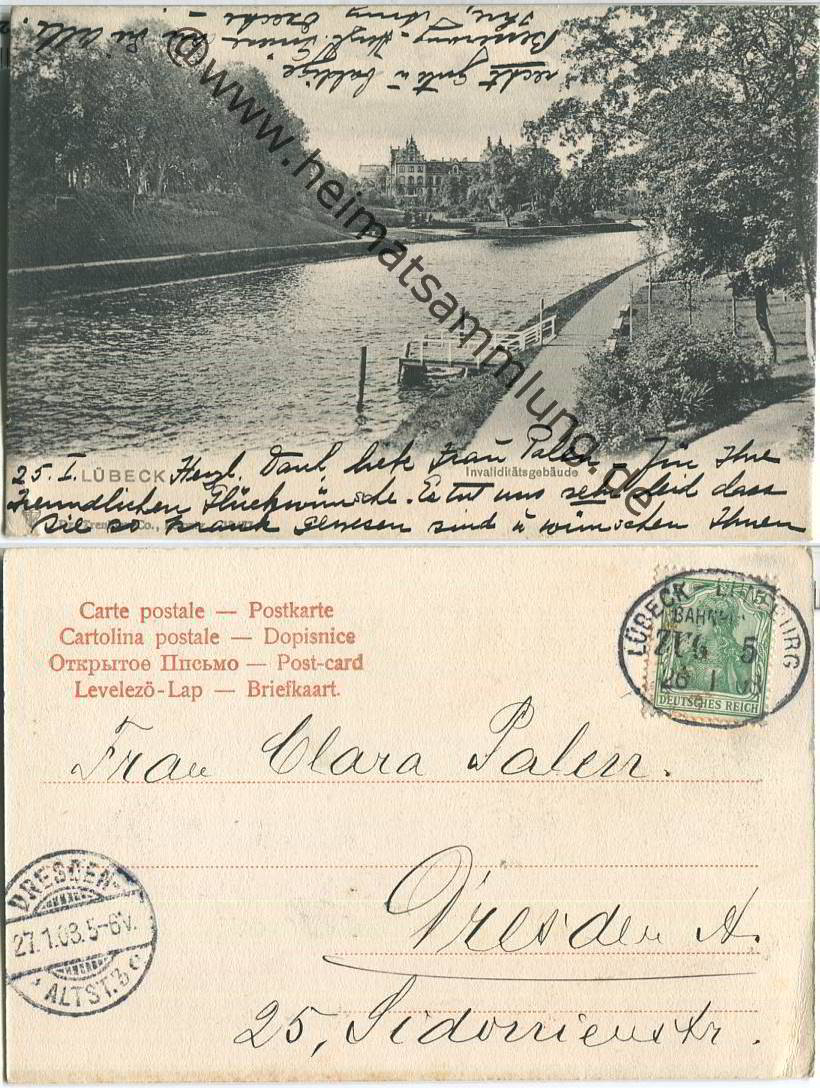 25. I. LÜBECK Herzl. Dank, liebe Frau Palen – für Ihre
Invaliditätsgebäude
freundlichen Glückwünsche. Es tut uns sehr leid dass
Sie so krank gewesen sind u wünschen Ihnen
recht gute u baldige
Besserung – Herzl. Grüsse an Sie alle.
Ihre Anny
© www.heimatsammlung.de
Carte postale — Postkarte
Cartolina postale — Dopisnice
Открытое Письмо — Post-card
Levelezö-Lap — Briefkaart.
LÜBECK – LÜNEBURG
BAHNPOST
ZUG 5
26 1 03
DEUTSCHES REICH
Frau Clara Palen.
DRESDEN-
27.1.03.5-6V.
ALTST. 3 c
Dresden A.
25, Sidonienstr.